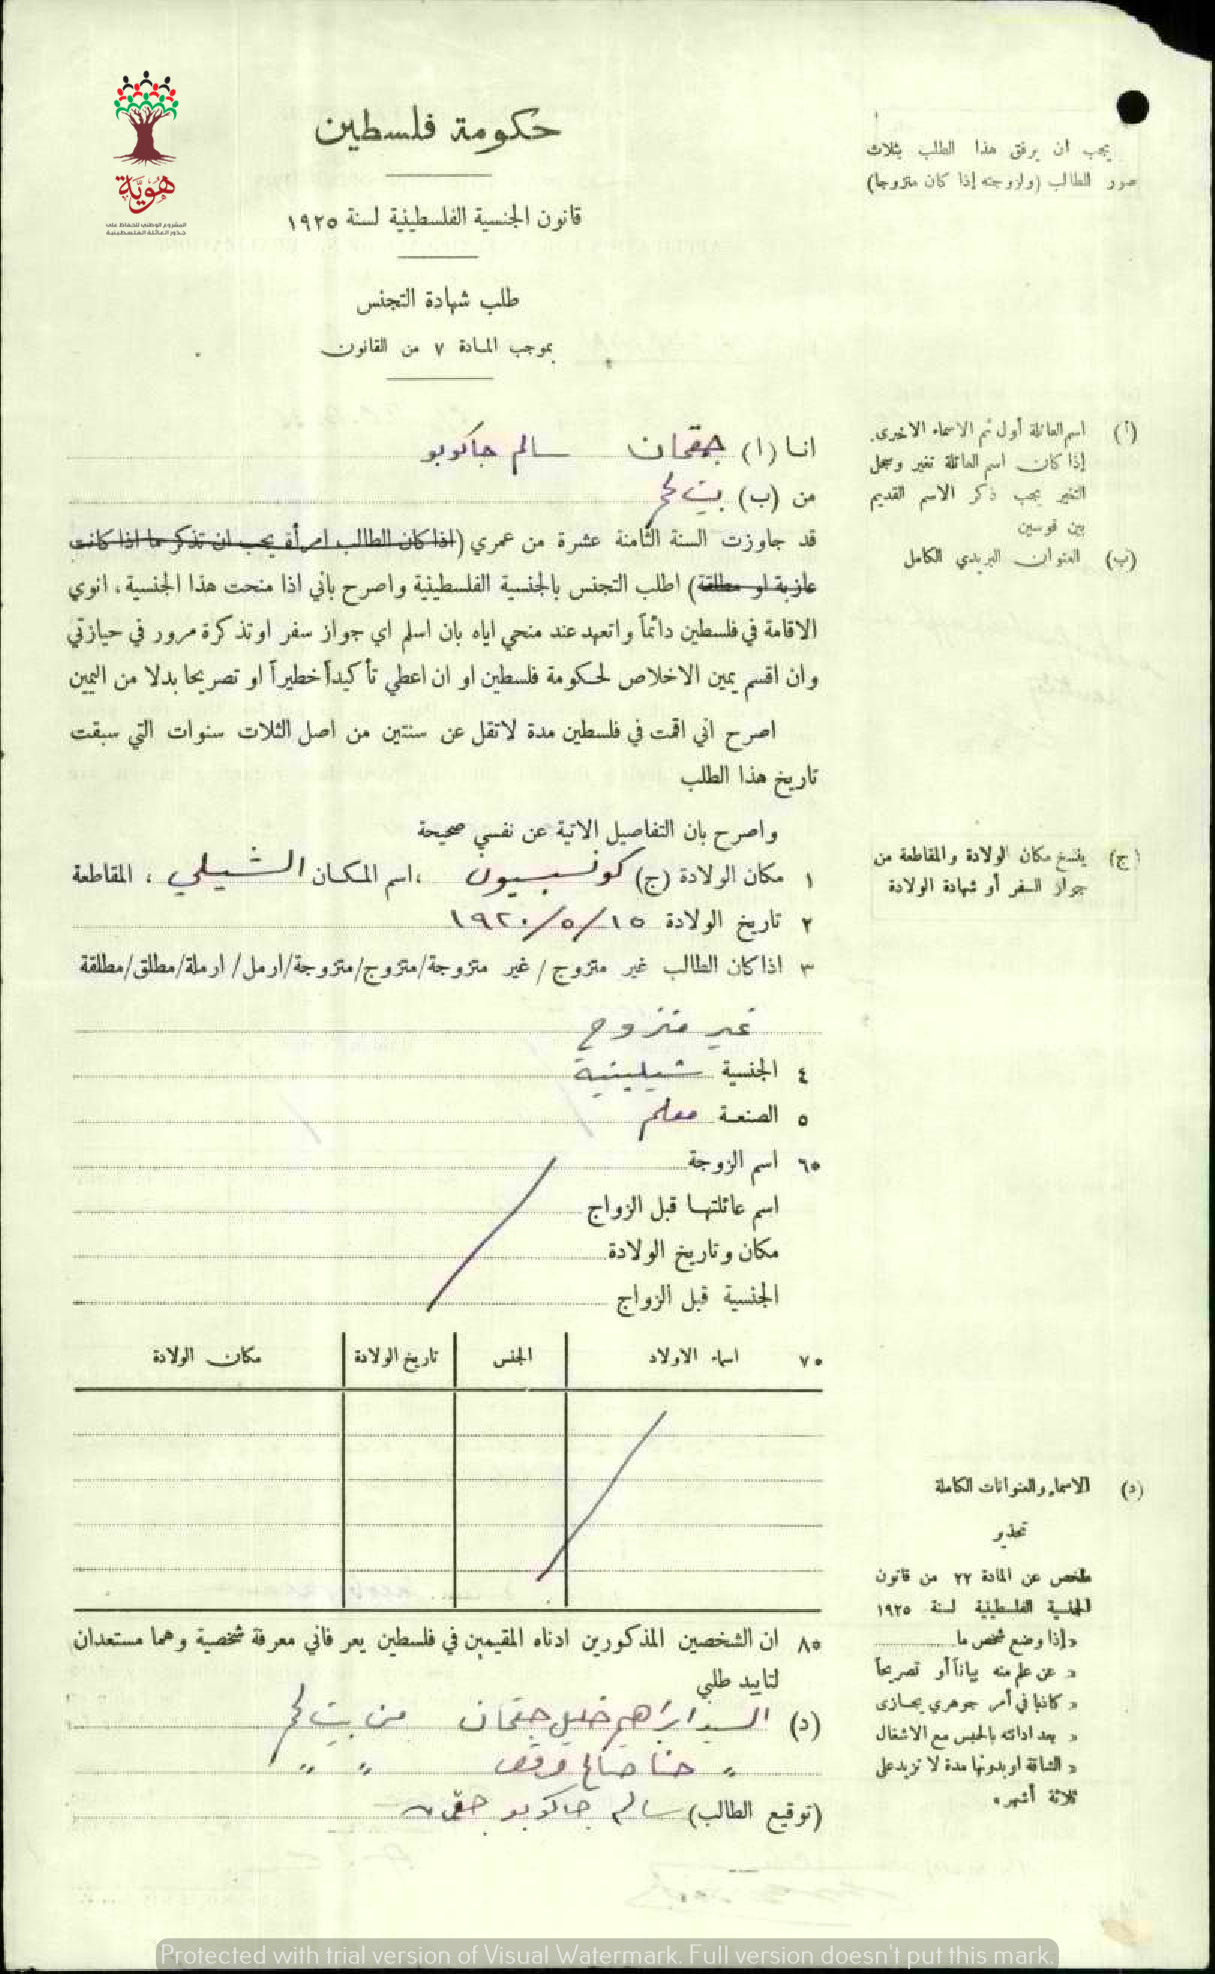 هوية
المشروع الوطني للحفاظ على
جذور العائلة الفلسطينية
حكومة فلسطين
قانون الجنسية الفلسطينية لسنة ١٩٢٥
طلب شهادة التجنس
بموجب المادة ٧ من القانون
يجب ان يرفق هذا الطلب بثلاث
صور الطالب (ولزوجته إذا كان متزوجا)
انا (ا) جقمان سالم جاكوبو
من (ب) بيت لحم
قد جاوزت السنة الثامنة عشرة من عمري (اذا كان الطالب امرأة يجب ان تذكر ما اذا كانت
عازبة او مطلقة) اطلب التجنس بالجنسية الفلسطينية واصرح بأني اذا منحت هذا الجنسية، انوي
الاقامة في فلسطين دائماً واتعهد عند منحي اياه بان اسلم اي جواز سفر او تذكرة مرور في حيازتي
وان اقسم يمين الاخلاص لحكومة فلسطين او ان اعطي تأكيداً خطيراً او تصريحا بدلا من اليمين
اصرح اني اقمت في فلسطين مدة لا تقل عن سنتين من اصل الثلاث سنوات التي سبقت
تاريخ هذا الطلب
واصرح بان التفاصيل الاتية عن نفسي صحيحة
١ مكان الولادة (ج) كونسبسيون ،اسم المكان الشيلي ، المقاطعة
٢ تاريخ الولادة ١٥/٥/١٩٢٠
٣ اذا كان الطالب غير متزوج / غير متزوجة/متزوج/متزوجة/ارمل/ ارملة/مطلق/مطلقة
غير متزوج
٤ الجنسية شيلينية
٥ الصنعة معلم
٦٥ اسم الزوجة
اسم عائلتها قبل الزواج
مكان وتاريخ الولادة
الجنسية قبل الزواج
٧٥ اسماء الاولاد الجنس تاريخ الولادة مكان الولادة
٨٥ ان الشخصين المذكورين ادناه المقيمين في فلسطين يعرفاني معرفة شخصية وهما مستعدان
لتاييد طلبي
(د) السيد ابراهيم خليل جقمان من بيت لحم
" حنا صالح مرقص " "
(توقيع الطالب) سالم جاكوبو جقمان
(أ) اسم العائلة أول ثم الاسماء الاخرى.
إذا كان اسم العائلة تغير وسجل
التغير يجب ذكر الاسم القديم
بين قوسين
(ب) العنوان البريدي الكامل
(ج) ينسخ مكان الولادة والمقاطعة من
جواز السفر أو شهادة الولادة
(د) الاسماء والعنوانات الكاملة
تحذير
ملخص عن المادة ٢٢ من قانون
الجنسية الفلسطينية لسنة ١٩٢٥
«إذا وضع شخص ما
« عن علم منه بياناً أو تصريحاً
« كاذبا في أمر جوهري يجازى
« بعد ادانته بالحبس مع الاشغال
« الشاقة او بدونها مدة لا تزيد على
ثلاثة أشهر»
Protected with trial version of Visual Watermark. Full version doesn't put this mark.